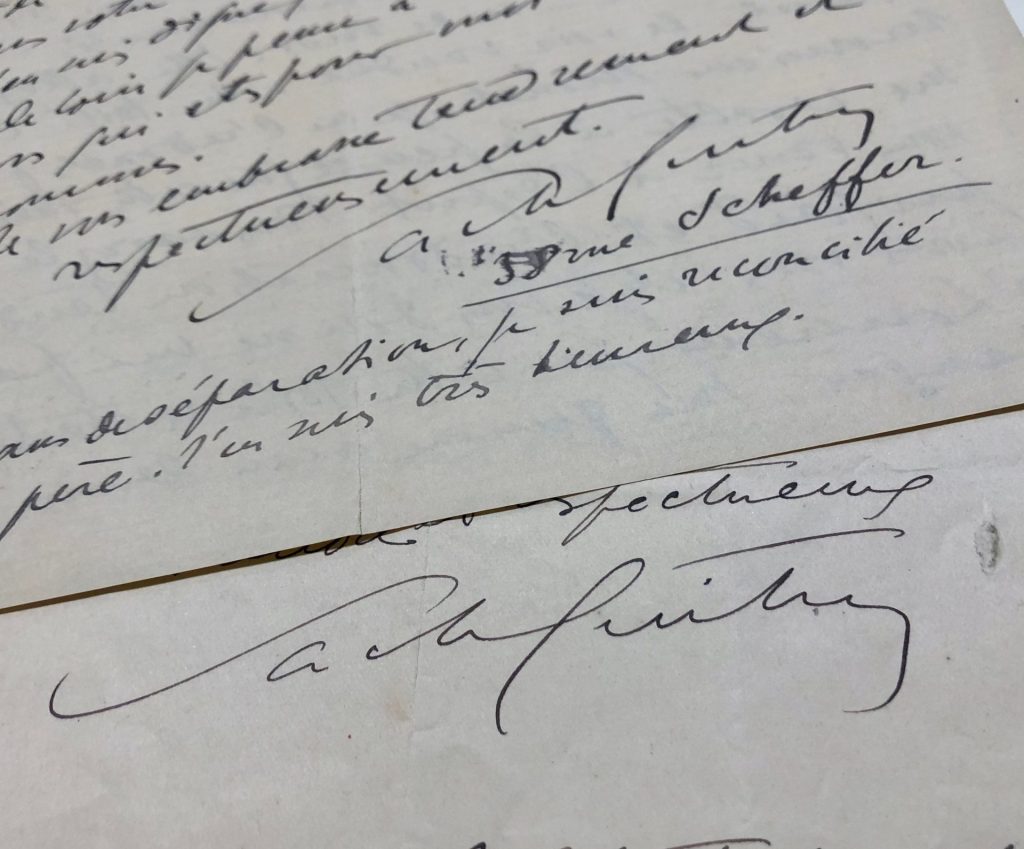 votre
suis
de loin je pense à
qui et pour moi
sommes.
Je vous embrasse tendrement et
respectueusement.
Sacha Guitry
rue Scheffer.
ans de séparation, je suis réconcilié
père. J'en suis très heureux.
respectueux
Sacha Guitry